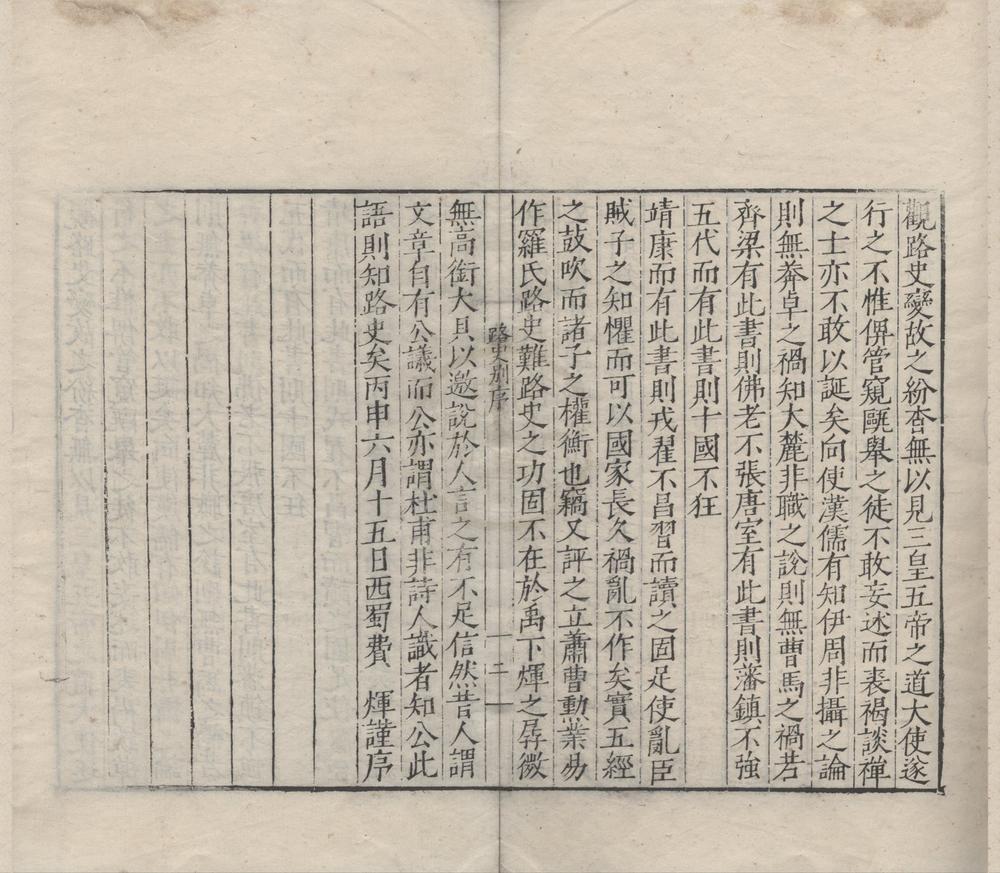 觀路史變故之紛杳無以見三皇五帝之道大使遂
行之不惟俾管窺甌舉之徒不敢妄述而表褐談禪
之士亦不敢以誕矣向使漢儒有知伊周非攝之論
則無莽卓之禍知大麓非職之說則無曹馬之禍若
齊梁有此書則佛老不張唐室有此書則藩鎮不強
五代而有此書則十國不狂
靖康而有此書則戎翟不昌習而讀之固足使亂臣
賊子之知懼而可以國家長久禍亂不作矣實五經
之鼓吹而諸子之權衡也竊又評之立蕭曹勳業易
作羅氏路史難路史之功固不在於禹下煇之孱微
路史別序
二
無高銜大具以邀說於人言之有不足信然昔人謂
文章自有公議而公亦謂杜甫非詩人識者知公此
語則知路史矣丙申六月十五日西蜀費 煇謹序